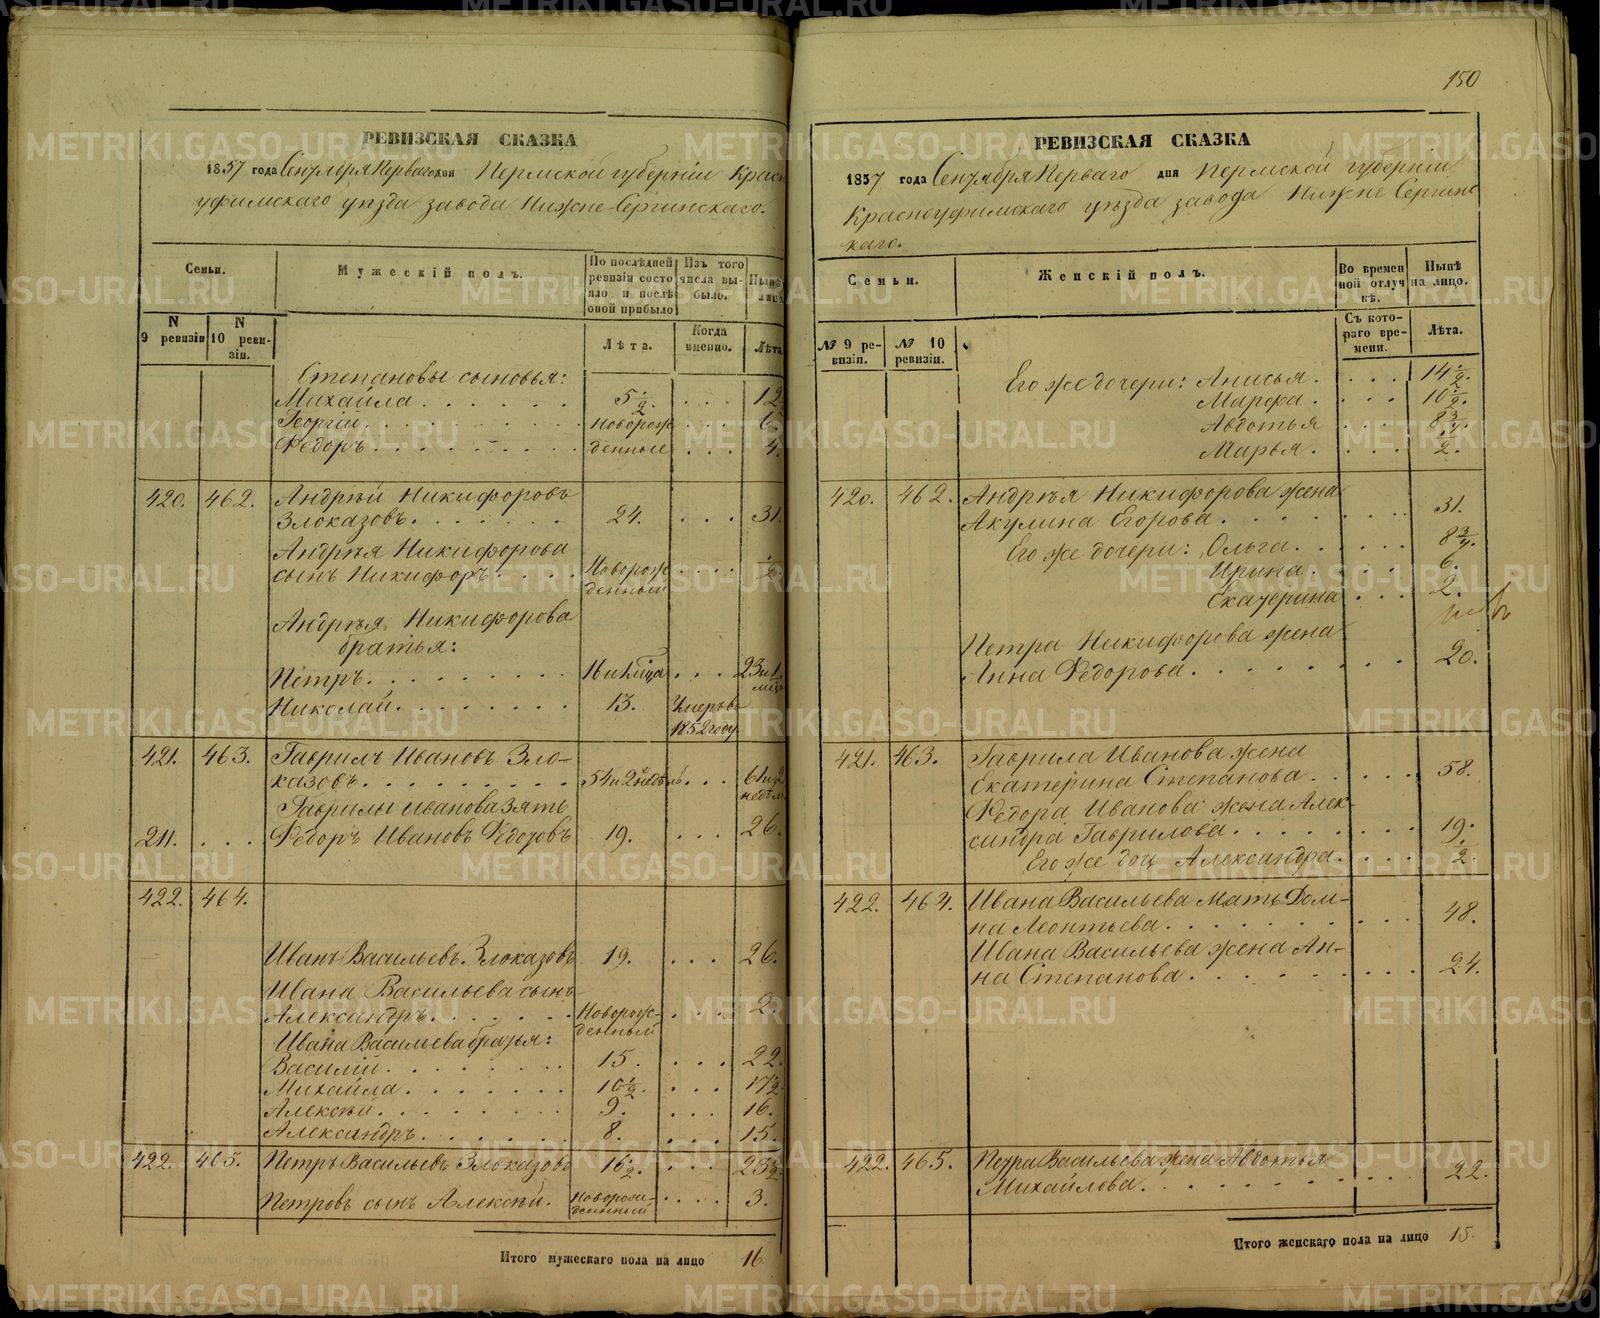 РЕВИЗСКАЯ СКАЗКА
1857 года Сентября Перваго дня Пермской губерніи Красн
уфимскаго уѣзда завода Нижне-Сергинскаго.
Семьи.
Мужескій полъ.
По послѣдней ревизіи состояло и послѣ оной прибыло
Изъ того числа выбыло.
Нынѣ на лицо
N 9 ревизіи
N 10 ревизіи.
Лѣта.
Когда именно.
Лѣта
Степановы сыновья:
Михайла 5 1/2. 12
Георгій новорож 6
Федоръ денные 4.
420. 462. Андрей Никифоровъ
Злоказовъ 24. 31.
Андрея Никифорова
сынъ Никифоръ Новорож 1/2.
денный
Андрея Никифорова
братья:
Петръ 16 и 1 мѣсяца 23 и 1
мѣс
Николай 13. Умеръ въ
1852 году
421. 463. Гаврилъ Ивановъ Зло-
казовъ 54 и 2 недѣль 61 и 2
недѣль
Гаврилы Иванова зять
211. Федоръ Ивановъ Федоровъ 19. 26.
422. 464.
Иванъ Васильевъ Злоказовъ 19. 26.
Ивана Васильева сынъ
Александръ Новорож- 2.
денный
Ивана Васильева братья:
Василій 15. 22.
Михайла 10 1/2. 17 1/2.
Алексѣй 9. 16.
Александръ 8. 15.
422. 465. Петръ Васильевъ Злоказовъ 16 1/2. 23 1/2.
Петровъ сынъ Алексѣй. Новорож- 3.
денный
Итого мужескаго пола на лицо 16
150
РЕВИЗСКАЯ СКАЗКА
1857 года Сентября Перваго дня Пермской губерніи
Красноуфимскаго уѣзда завода Нижне Сергинс
каго.
Семьи.
Женскій полъ.
Во временной отлучкѣ.
Нынѣ на лицо.
№ 9 ревизіи.
№ 10 ревизіи.
Съ котораго времени.
Лѣта.
Его же дочери: Анисья. 14 1/2.
Марфа. 10 1/2.
Авдотья 8 3/4.
Марья. 1/2.
420. 462. Андрея Никифорова жена
Акулина Егорова. 31.
Его же дочери: Ольга. 8 3/4.
Ирина. 6.
Екатерина 2.
Петра Никифорова жена
Анна Федорова. 20.
421. 463. Гаврила Иванова жена
Екатерина Степанова. 58.
Федора Иванова жена Алек-
сандра Гаврилова. 19.
Его же дочь Александра. 1/2.
422. 464. Ивана Васильева мать Дом-
на Леонтьева. 48.
Ивана Васильева жена Ан-
на Степанова. 24.
422. 465. Петра Васильева жена Авдотья
Михайлова. 22.
Итого женскаго пола на лицо 15.
METRIKI.GASO-URAL.RU